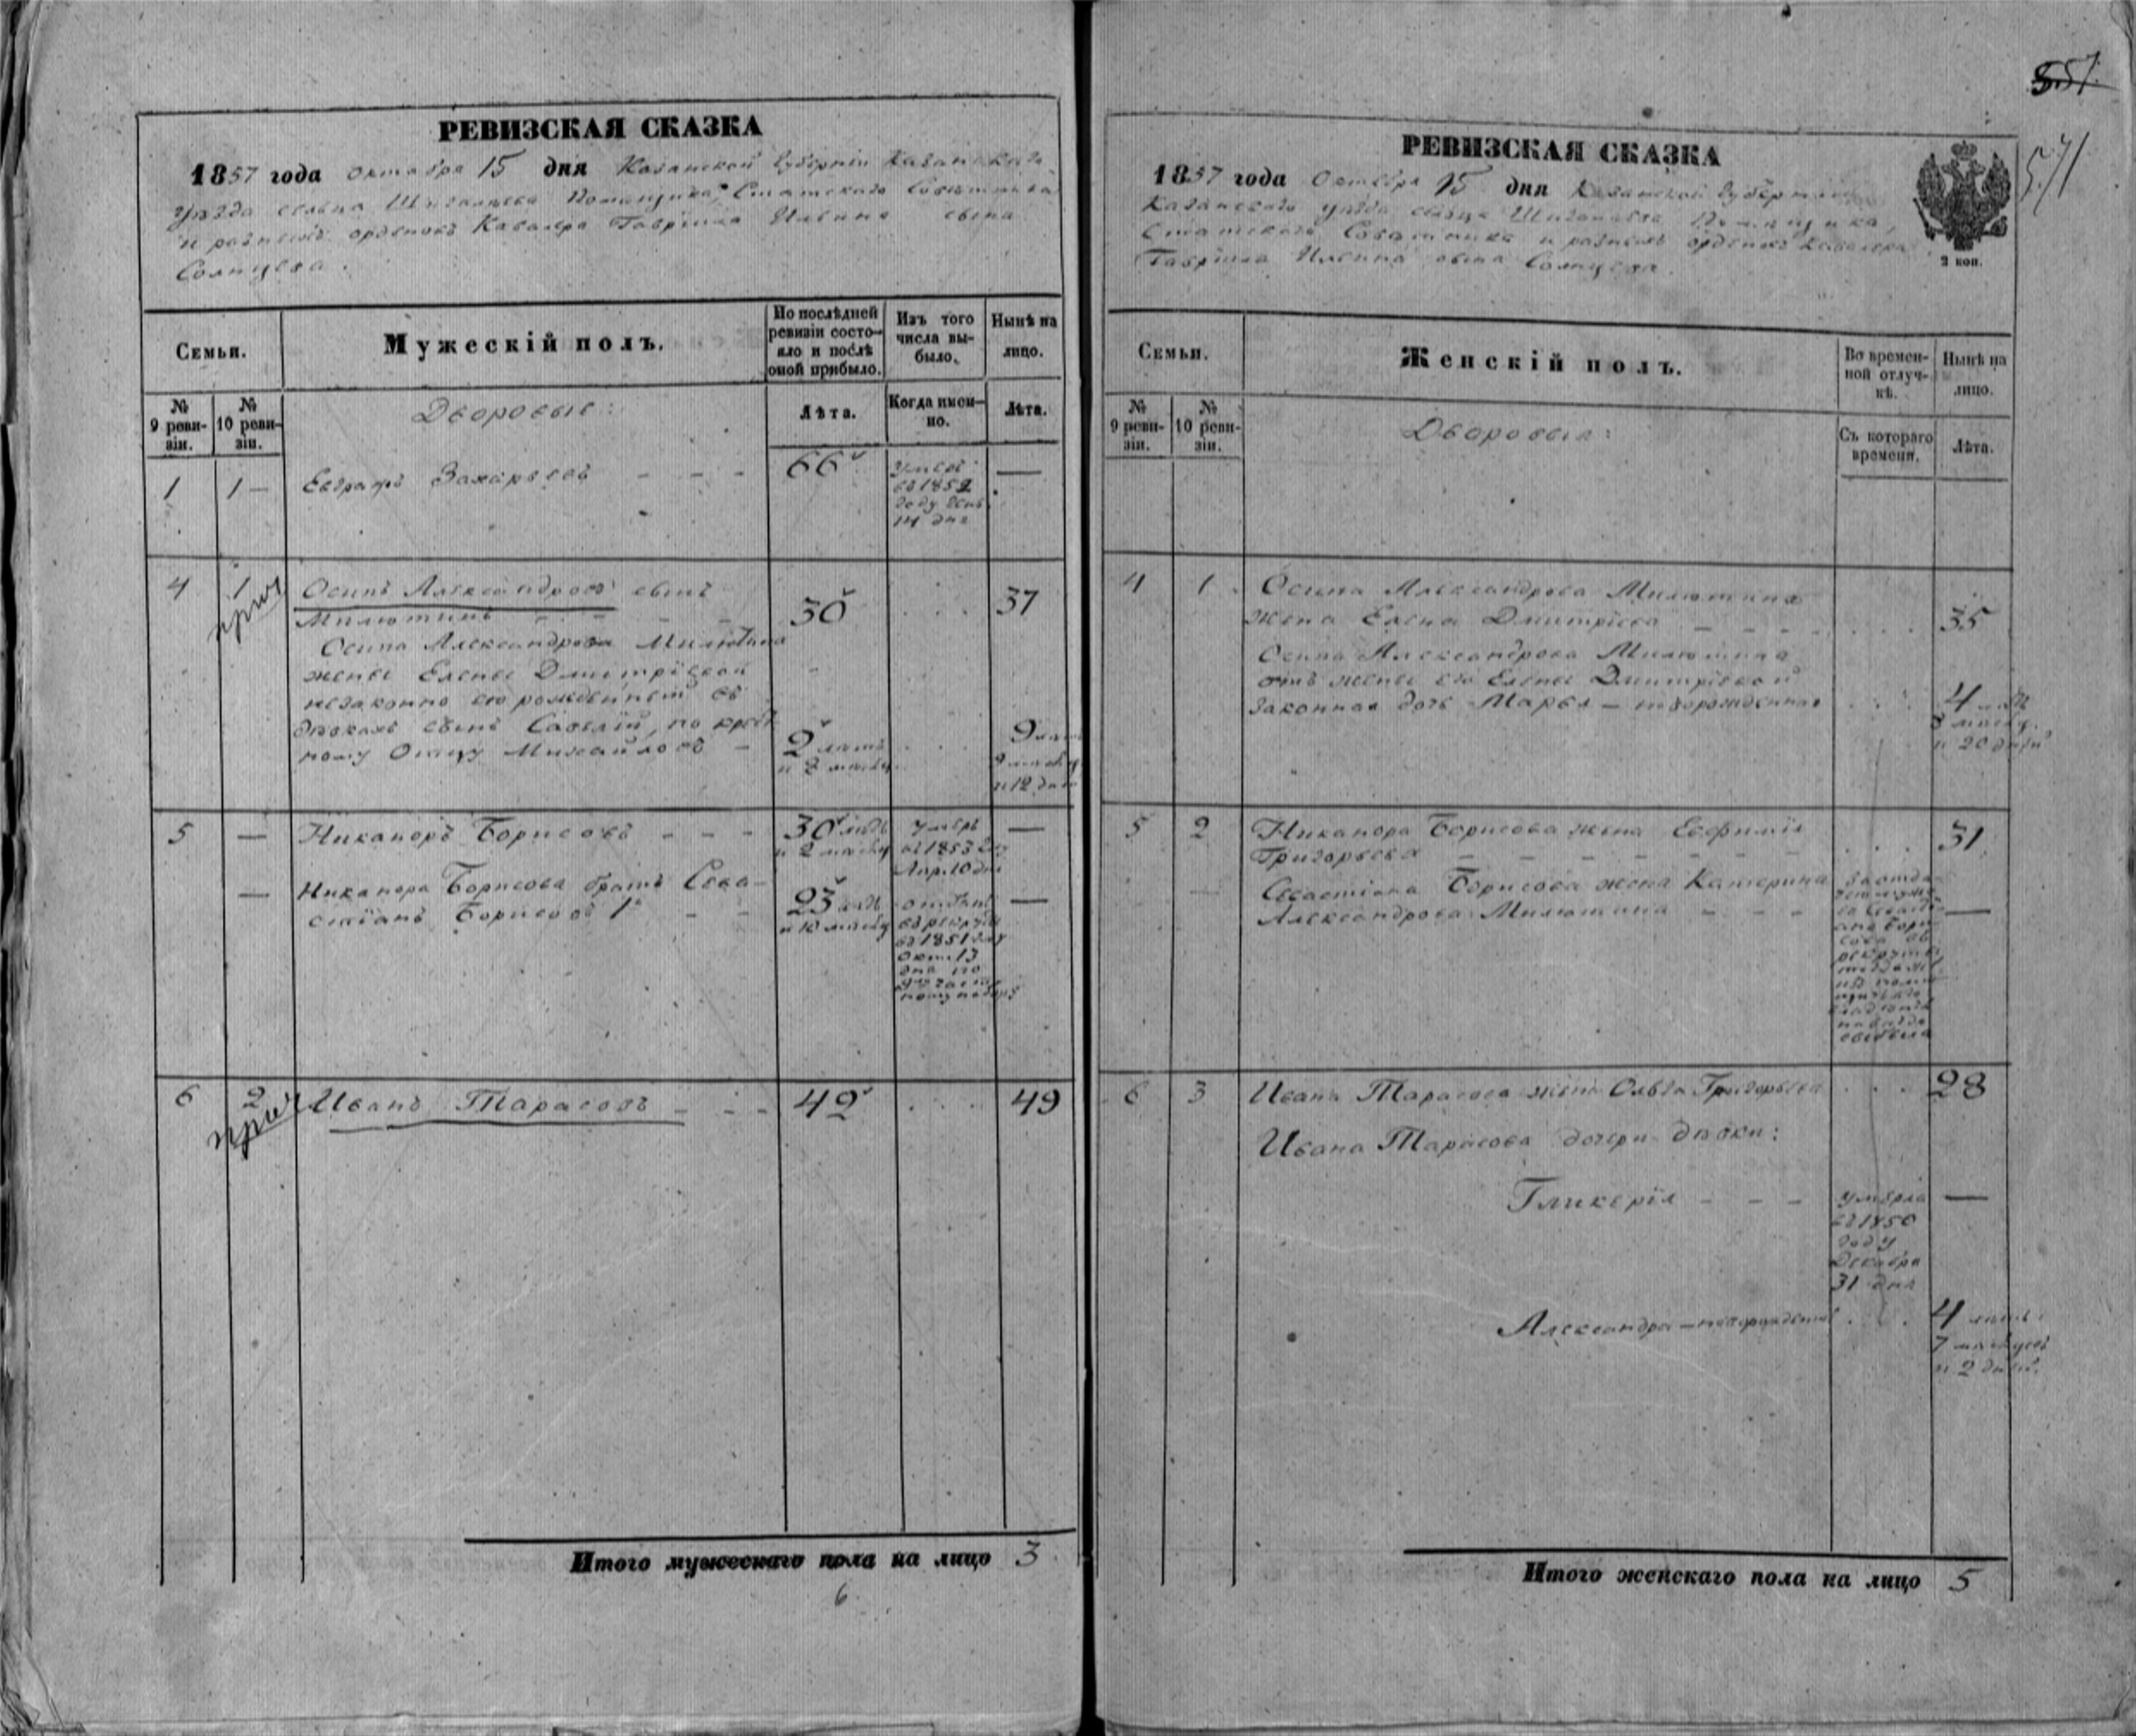 551
571
РЕВИЗСКАЯ СКАЗКА
1857 года октября 15 дня Казанской Губерніи Казанскаго
уѣзда сельца Шигалѣева Помѣщика, Статскаго Совѣтника
и разныхъ орденовъ Кавалера Гавріила Ильина сына
Солнцева.
Семьи.
Мужескій полъ.
По послѣдней ревизіи состо-
яло и послѣ оной прибыло.
Изъ того числа вы-
было.
Нынѣ на лицо.
№ 9 реви-
зіи.
№ 10 реви-
зіи.
Дворовые:
Лѣта.
Когда имен-
но.
Лѣта.
1 1 — Евграфъ Захарьевъ - - - 66 умеръ —
въ 1852
году
14 дня
4 1 Осипъ Александровъ сынъ
при
Милютинъ - - - 30 . . . 37
Осипа Александрова Милютина
жены Елены Дмитріевой
незаконно ею рожденный въ
дѣвкахъ сынъ Савелій, по крест-
ному Отцу Михайловъ — 2 лѣтъ . . . 9 лѣтъ
и 2 мѣсяц.
9 мѣсяц.
и 12 дней
5 — Никаноръ Борисовъ - - - 30 лѣтъ умеръ —
и 2 мѣсяц. въ 1853 году
Апр. 10 дня
— Никанора Борисова братъ Сева-
стіанъ Борисовъ 1й - - 23 лѣтъ отданъ —
и 10 мѣсяц. въ рекруты
въ 1851 году
Окт. 13
дня по
6 2 Иванъ Тарасовъ - - - 42 . . . 49
при
Итого мужескаго пола на лицо 3
6.
РЕВИЗСКАЯ СКАЗКА
1857 года Октября 15 дня Казанской Губерніи
Казанскаго уѣзда сельца Шигалѣева Помѣщика,
Статскаго Совѣтника и разныхъ орденовъ Кавалера
Гавріила Ильина сына Солнцева.
2 коп.
Семьи.
Женскій полъ.
Во времен-
ной отлуч-
кѣ.
Нынѣ на лицо.
№ 9 реви-
зіи.
№ 10 реви-
зіи.
Дворовыя:
Съ котораго времени.
Лѣта.
4 1 Осипа Александрова Милютина
жена Елена Дмитріева - - - . . . 35
Осипа Александрова Милютина
отъ жены его Елены Дмитріевой
законная дочь Марья — новорожденная . . . 4 лѣтъ
8 мѣсяц.
и 20 дней
5 2 Никанора Борисова жена Евфимія
Григорьева - - - - - - . . . 31
— Севастіана Борисова жена Катерина
Александрова Милютина - - - —
за отда-
чею мужа
ея Севасті-
ана Бори-
сова въ
рекруты
6 3 Ивана Тарасова жена Ольга Григорьева . . . 28
Ивана Тарасова дочери дѣвки:
Гликерія - - - умерла —
въ 1850
году
Декабря
31 дня
Александра — новорожденная . . . 4 лѣтъ
7 мѣсяцовъ
и 2 дней.
Итого женскаго пола на лицо 5